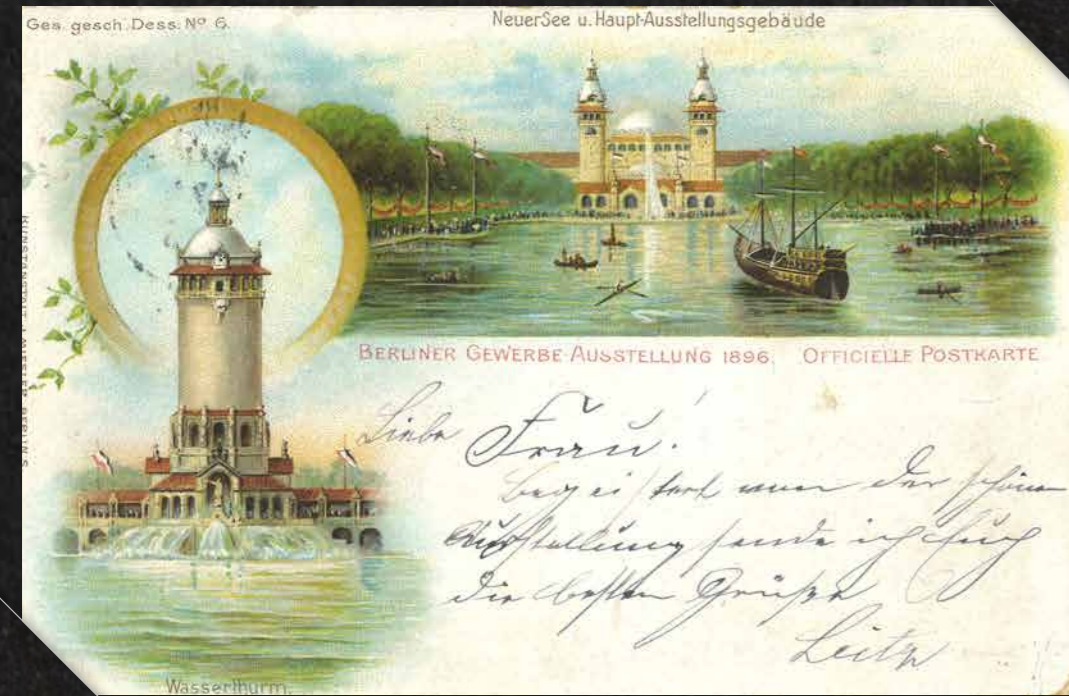 Ges. gesch. Dess. Nº 6.
Neuer See u. Haupt-Ausstellungsgebäude
KUNSTANSTALT J. MIESLER, BERLIN S.
BERLINER GEWERBE-AUSSTELLUNG 1896. OFFICIELLE POSTKARTE
Liebe Frau!
Begeistert von der schönen
Ausstellung sende ich Euch
die besten Grüße
Wasserthurm.